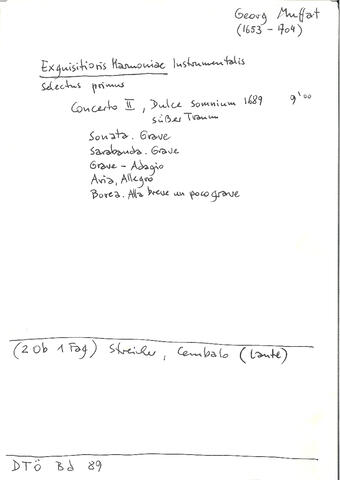 Georg Muffat
(1653 - 1704)
Exquisitioris Harmoniae Instrumentalis
Selectus primus
Concerto II, Dulce somnium 1689 9'00
süßer Traum
Sonata. Grave
Sarabanda. Grave
Grave - Adagio
Aria, Allegro
Borea. Alla breve un poco grave
(2 Ob 1 Fag) Streicher, Cembalo (Laute)
DTÖ Bd 89